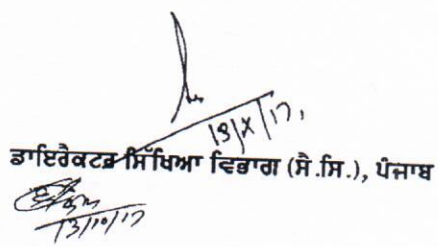 13/X/17,
ਡਾਇਰੈਕਟਰ ਸਿੱਖਿਆ ਵਿਭਾਗ (ਸੈ.ਸਿ.), ਪੰਜਾਬ
13/10/17